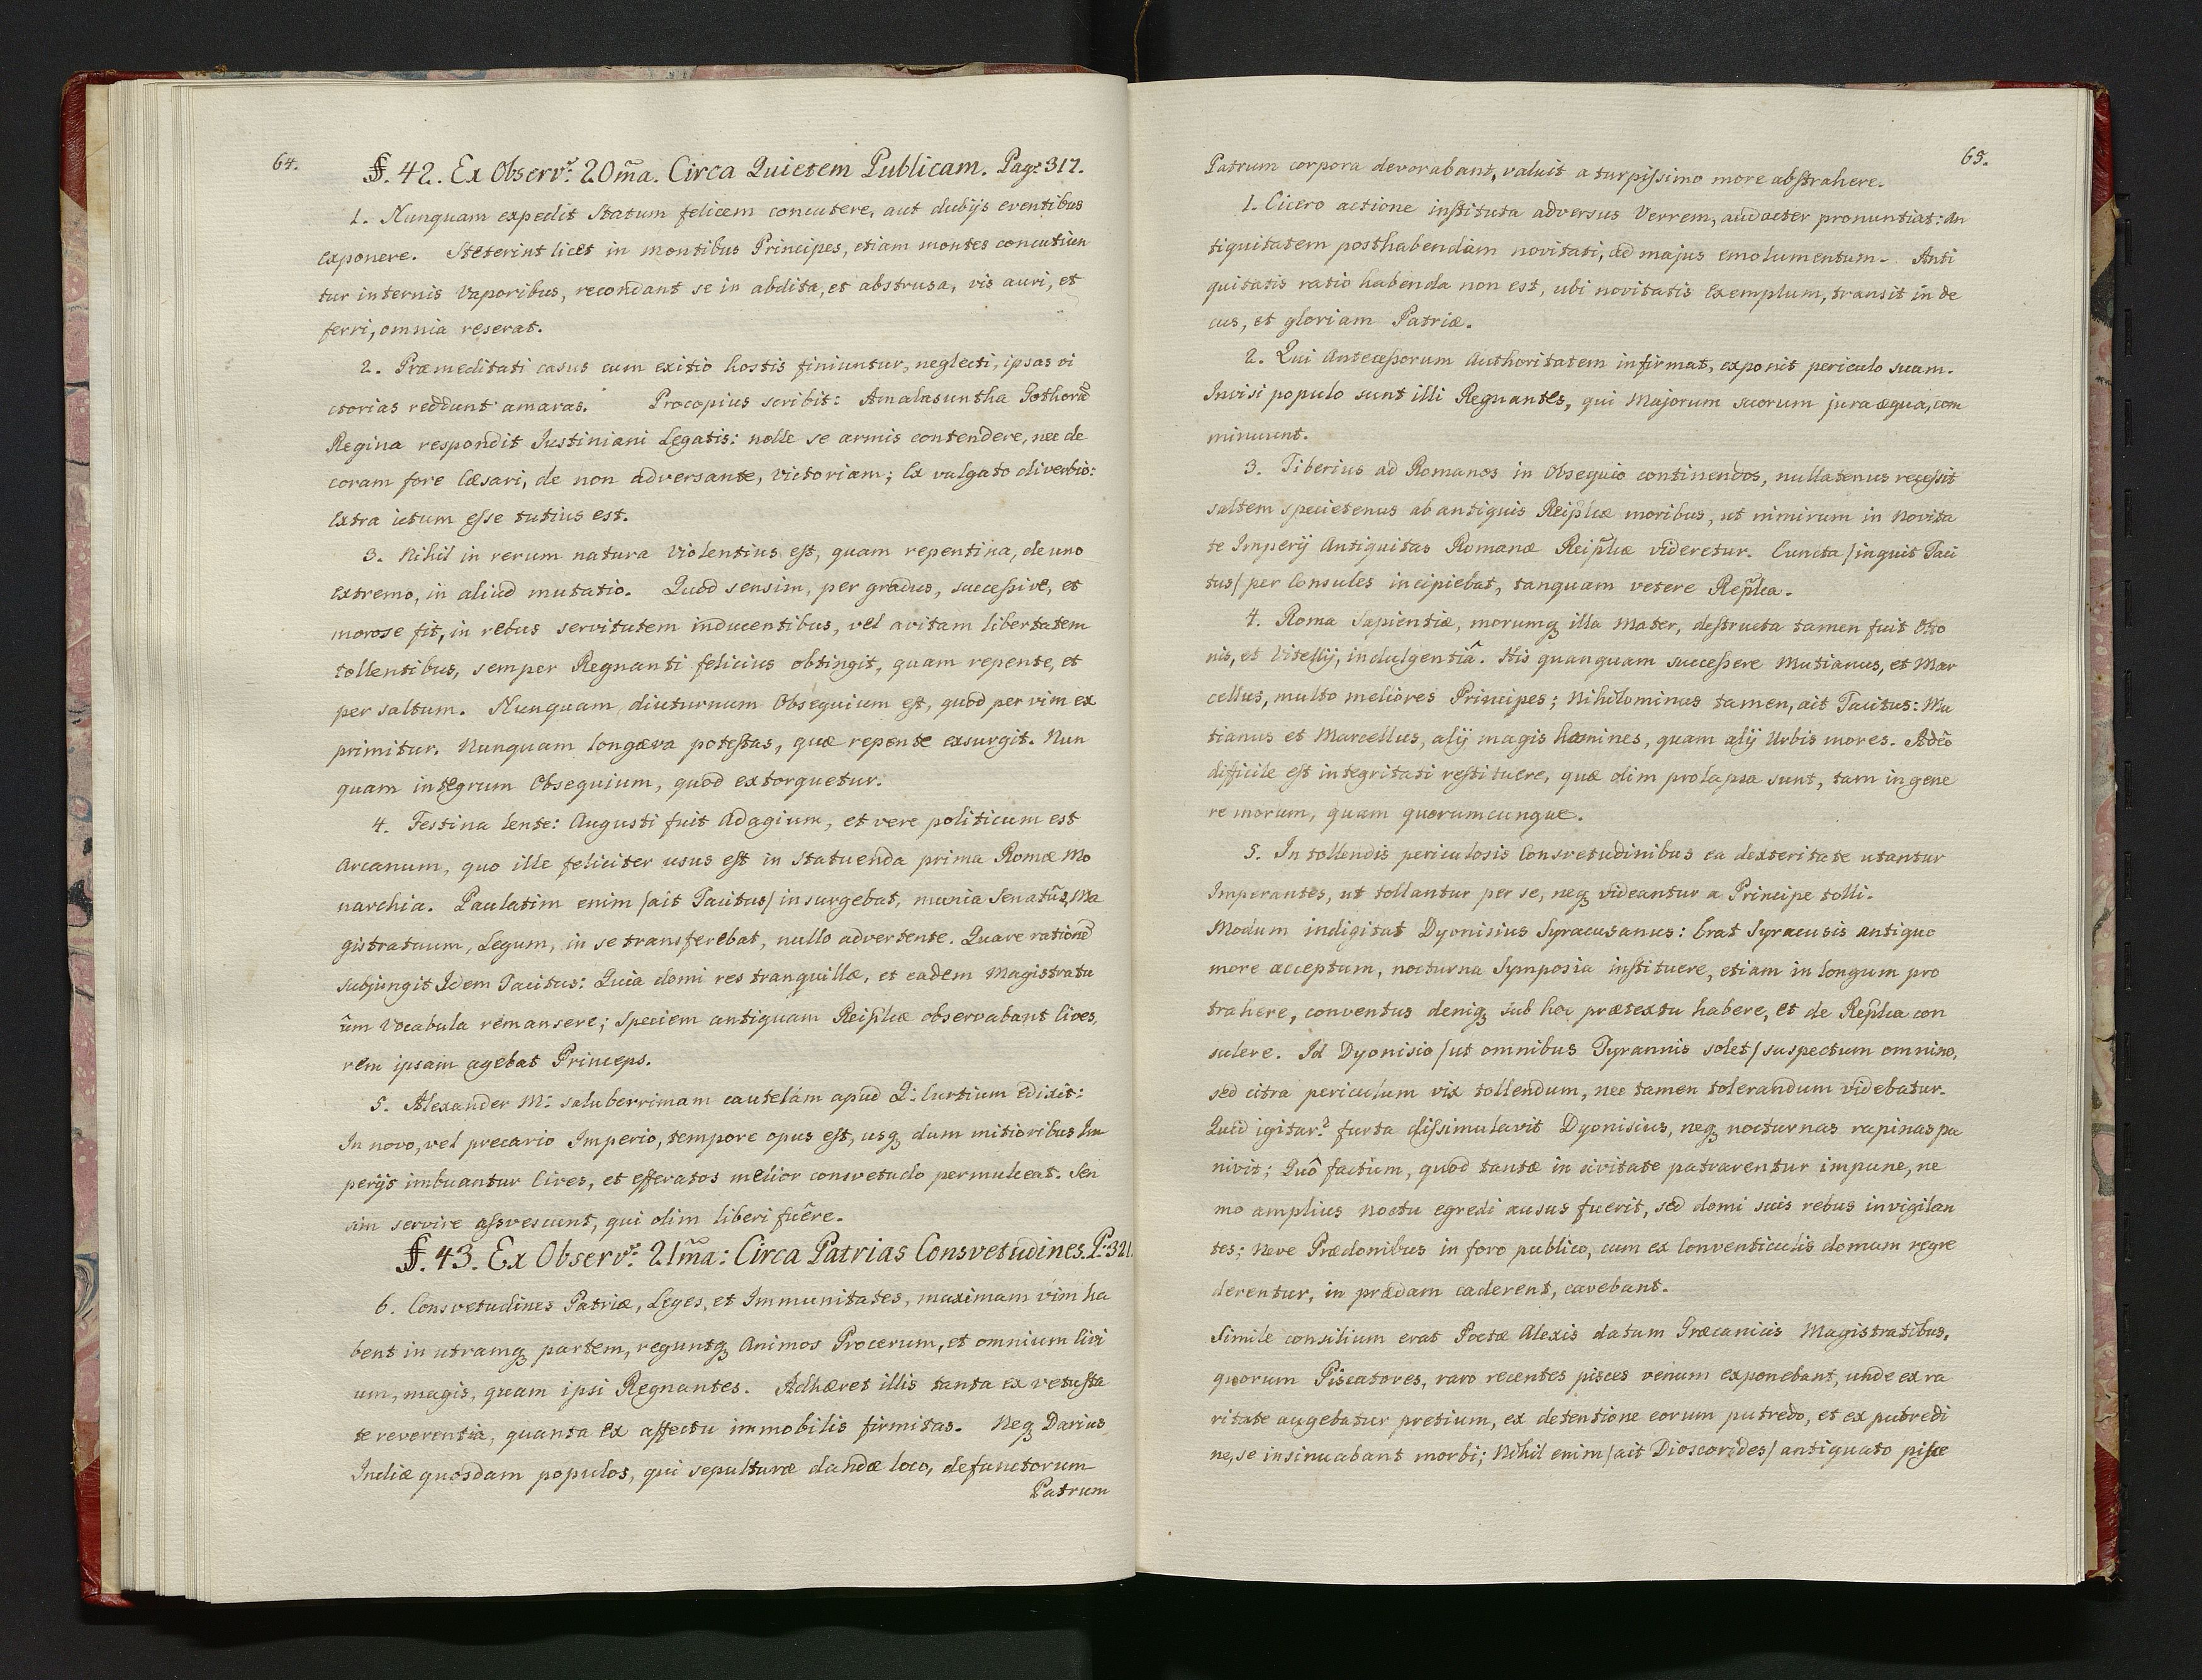 64.
§. 42. Ex Observ: 20m̃a. Circa Quietem Publicam. Pag: 317.
1. Nunquam expedit Statum felicem concutere, aut dubijs eventibus
exponere. Steterint licet in montibus Principes, etiam montes concutiun
tur internis Vaporibus, recondant se in abdita, et abstrusa, vis auri, et
ferri, omnia reserat.
2. Præmeditati casus cum exitio hostis finiuntur, neglecti, ipsas vi
ctorias reddunt amaras. Procopius scribit: Amalasuntha Gothorũ
Regina respondit Iustiniani Legatis: nolle se armis contendere, nec de
coram fore Cæsari, de non adversante, victoriam; Ex vulgato diverbio:
Extra ictum esse tutius est.
3. Nihil in rerum natura violentius est, quam repentina, de uno
extremo, in aliud mutatio. Quod sensim, per gradus, successive, et
morose fit, in rebus servitutem inducentibus, vel avitam libertatem
tollentibus, semper Regnanti felicius obtingit, quam repente, et
per saltum. Nunquam diuturnum Obsequium est, quod per vim ex
primitur. Nunquam longæva potestas, quæ repente exsurgit. Nun
quam integrum Obsequium, quod extorquetur.
4. Festina lente: Augusti fuit Adagium, et vere politicum est
Arcanum, quo ille feliciter usus est in statuenda prima Romæ Mo
narchia. Paulatim enim /ait Tacitus/ insurgebat, munia Senatûs, Ma
gistratuum, Legum, in se transferebat, nullo advertente. Quare rationẽ
subjungit Idem Tacitus: Quia domi res tranquillæ, et eadem Magistratu
ûm Vocabula remansere; Speciem antiquam Reip̃licæ observabant Cives,
rem ipsam agebat Princeps.
5. Alexander M: saluberrimam cautelam apud Q: Curtium edixit:
In novo, vel precario Imperio, tempore opus est, usq dum mitioribus Im
perijs imbuantur Cives, et efferatos melior consvetudo permulceat. Sen
sim servire assvescunt, qui olim liberi fuêre.
§. 43. Ex Observ: 21m̃a: Circa Patrias Consvetudines. P: 321.
6. Consvetudines Patriæ, Leges, et Immunitates, maximam vim ha
bent in utramq partem, reguntq Animos Procerum, et omnium Civi
um, magis, quam ipsi Regnantes. Adhæret illis tanta ex vetusta
te reverentia, quanta ex affectu immobilis firmitas. Neq Darius
Indiæ quosdam populos, qui sepulturæ dandæ loco, defunctorum
Patrum
65.
Patrum corpora devorabant, valuit a turpissimo more abstrahere.
1. Cicero actione instituta adversus Verrem, audacter pronuntiat: An
tiquitatem posthabendam novitati, ad majus emolumentum. Anti
quitatis ratio habenda non est, ubi novitatis Exemplum, transit in de
cus, et gloriam Patriæ.
2. Qui Antecessorum Authoritatem infirmat, exponit periculo suam.
Invisi populo sunt illi Regnantes, qui Majorum suorum jura æqua, com
minuunt.
3. Tiberius ad Romanos in Obsequio continendos, nullatenus recessit
saltem specietenus ab antiquis Reip̃licæ moribus, ut nimirum in Novita
te Imperij Antiquitas Romanæ Reip̃licæ videretur. Cuncta /inquit Taci
tus/ per Consules incipiebat, tanquam vetere Rep̃lica.
4. Roma Sapientiæ, morumq illa Mater, destructa tamen fuit Otto
nis, et Vitellij, indulgentiâ. His quanquam successere Mutianus, et Mar
cellus, multo meliores Principes; Nihilominus tamen, ait Tacitus: Mu
tianus et Marcellus, alij magis homines, quam alij Urbis mores. Adeo
difficile est integritati restituere, quæ olim prolapsa sunt, tam in gene
re morum, quam quorumcunque.
5. In tollendis periculosis Consvetudinibus ea dexteritate utantur
Imperantes, ut tollantur per se, neq videantur a Principe tolli.
Modum indigitat Dyonisius Syracusanus: Erat Syracusis antiquo
more acceptum, nocturna Symposia instituere, etiam in longum pro
trahere, conventus deniq sub hoc prætextu habere, et de Rep̃lica con
sulere. Id Dyonisio /ut omnibus Tyrannis solet/ suspectum omnino,
sed citra periculum vix tollendum, nec tamen tolerandum videbatur.
Quid igitur? furta dissimulavit Dyonisius, neq nocturnas rapinas pu
nivit; Quô factum, quod tantæ in civitate patrarentur impune, ne
mo amplius noctu egredi ausus fuerit, sed domi suis rebus invigilan
tes; Neve Prædonibus in foro publico, cum ex Conventiculis domum regre
derentur, in prædam caderent, cavebant.
Simile consilium erat Poetæ Alexis datum Græcanicis Magistratibus,
quorum Piscatores, raro recentes pisces venum exponebant, unde ex ra
ritate augebatur pretium, ex detentione eorum putredo, et ex putredi
ne, se insinuabant morbi; Nihil enim /ait Dioscorides/ antiquato pisce